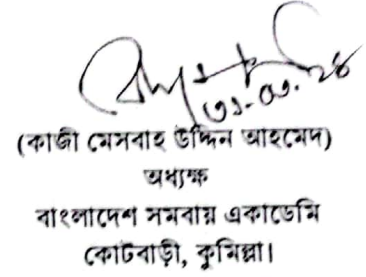 ৩১.০৩.২৪
(কাজী মেসবাহ উদ্দিন আহমেদ)
অধ্যক্ষ
বাংলাদেশ সমবায় একাডেমি
কোটবাড়ী, কুমিল্লা।